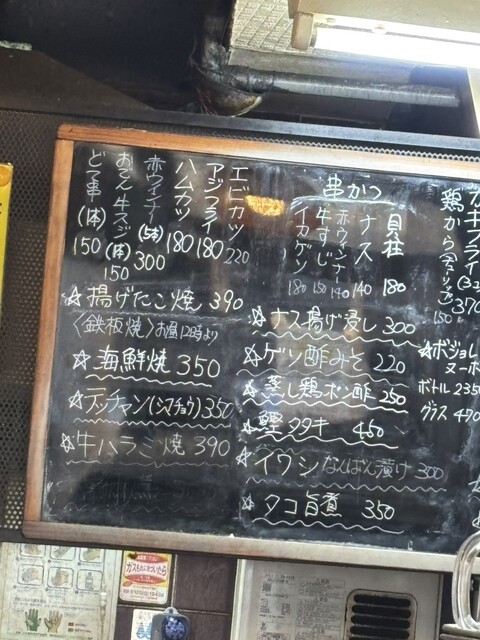 エビカツ 220
アジフライ 180
ハムカツ 180
赤ウインナー (5本) 300
おでん牛スジ (1本) 150
どて串 (1本) 150
☆揚げたこ焼 390
〈鉄板焼〉お昼12時より
☆海鮮焼 350
☆テッチャン(シマチョウ) 350
☆牛ハラミ焼 390
串かつ
貝柱 180
ナス 140
赤ウィンナ 140
牛すじ 150
イカゲソ 180
☆ナス揚げ浸し 300
☆ゲソ酢みそ 220
☆蒸し鶏ポン酢 250
☆鰹タタキ 450
☆イワシなんばん漬け 300
☆タコ旨煮 350
カキフライ
370
鶏から
150
☆ボジョレ
ヌーボ
ボトル 235
グラス 470
ガスもれに気づいたら